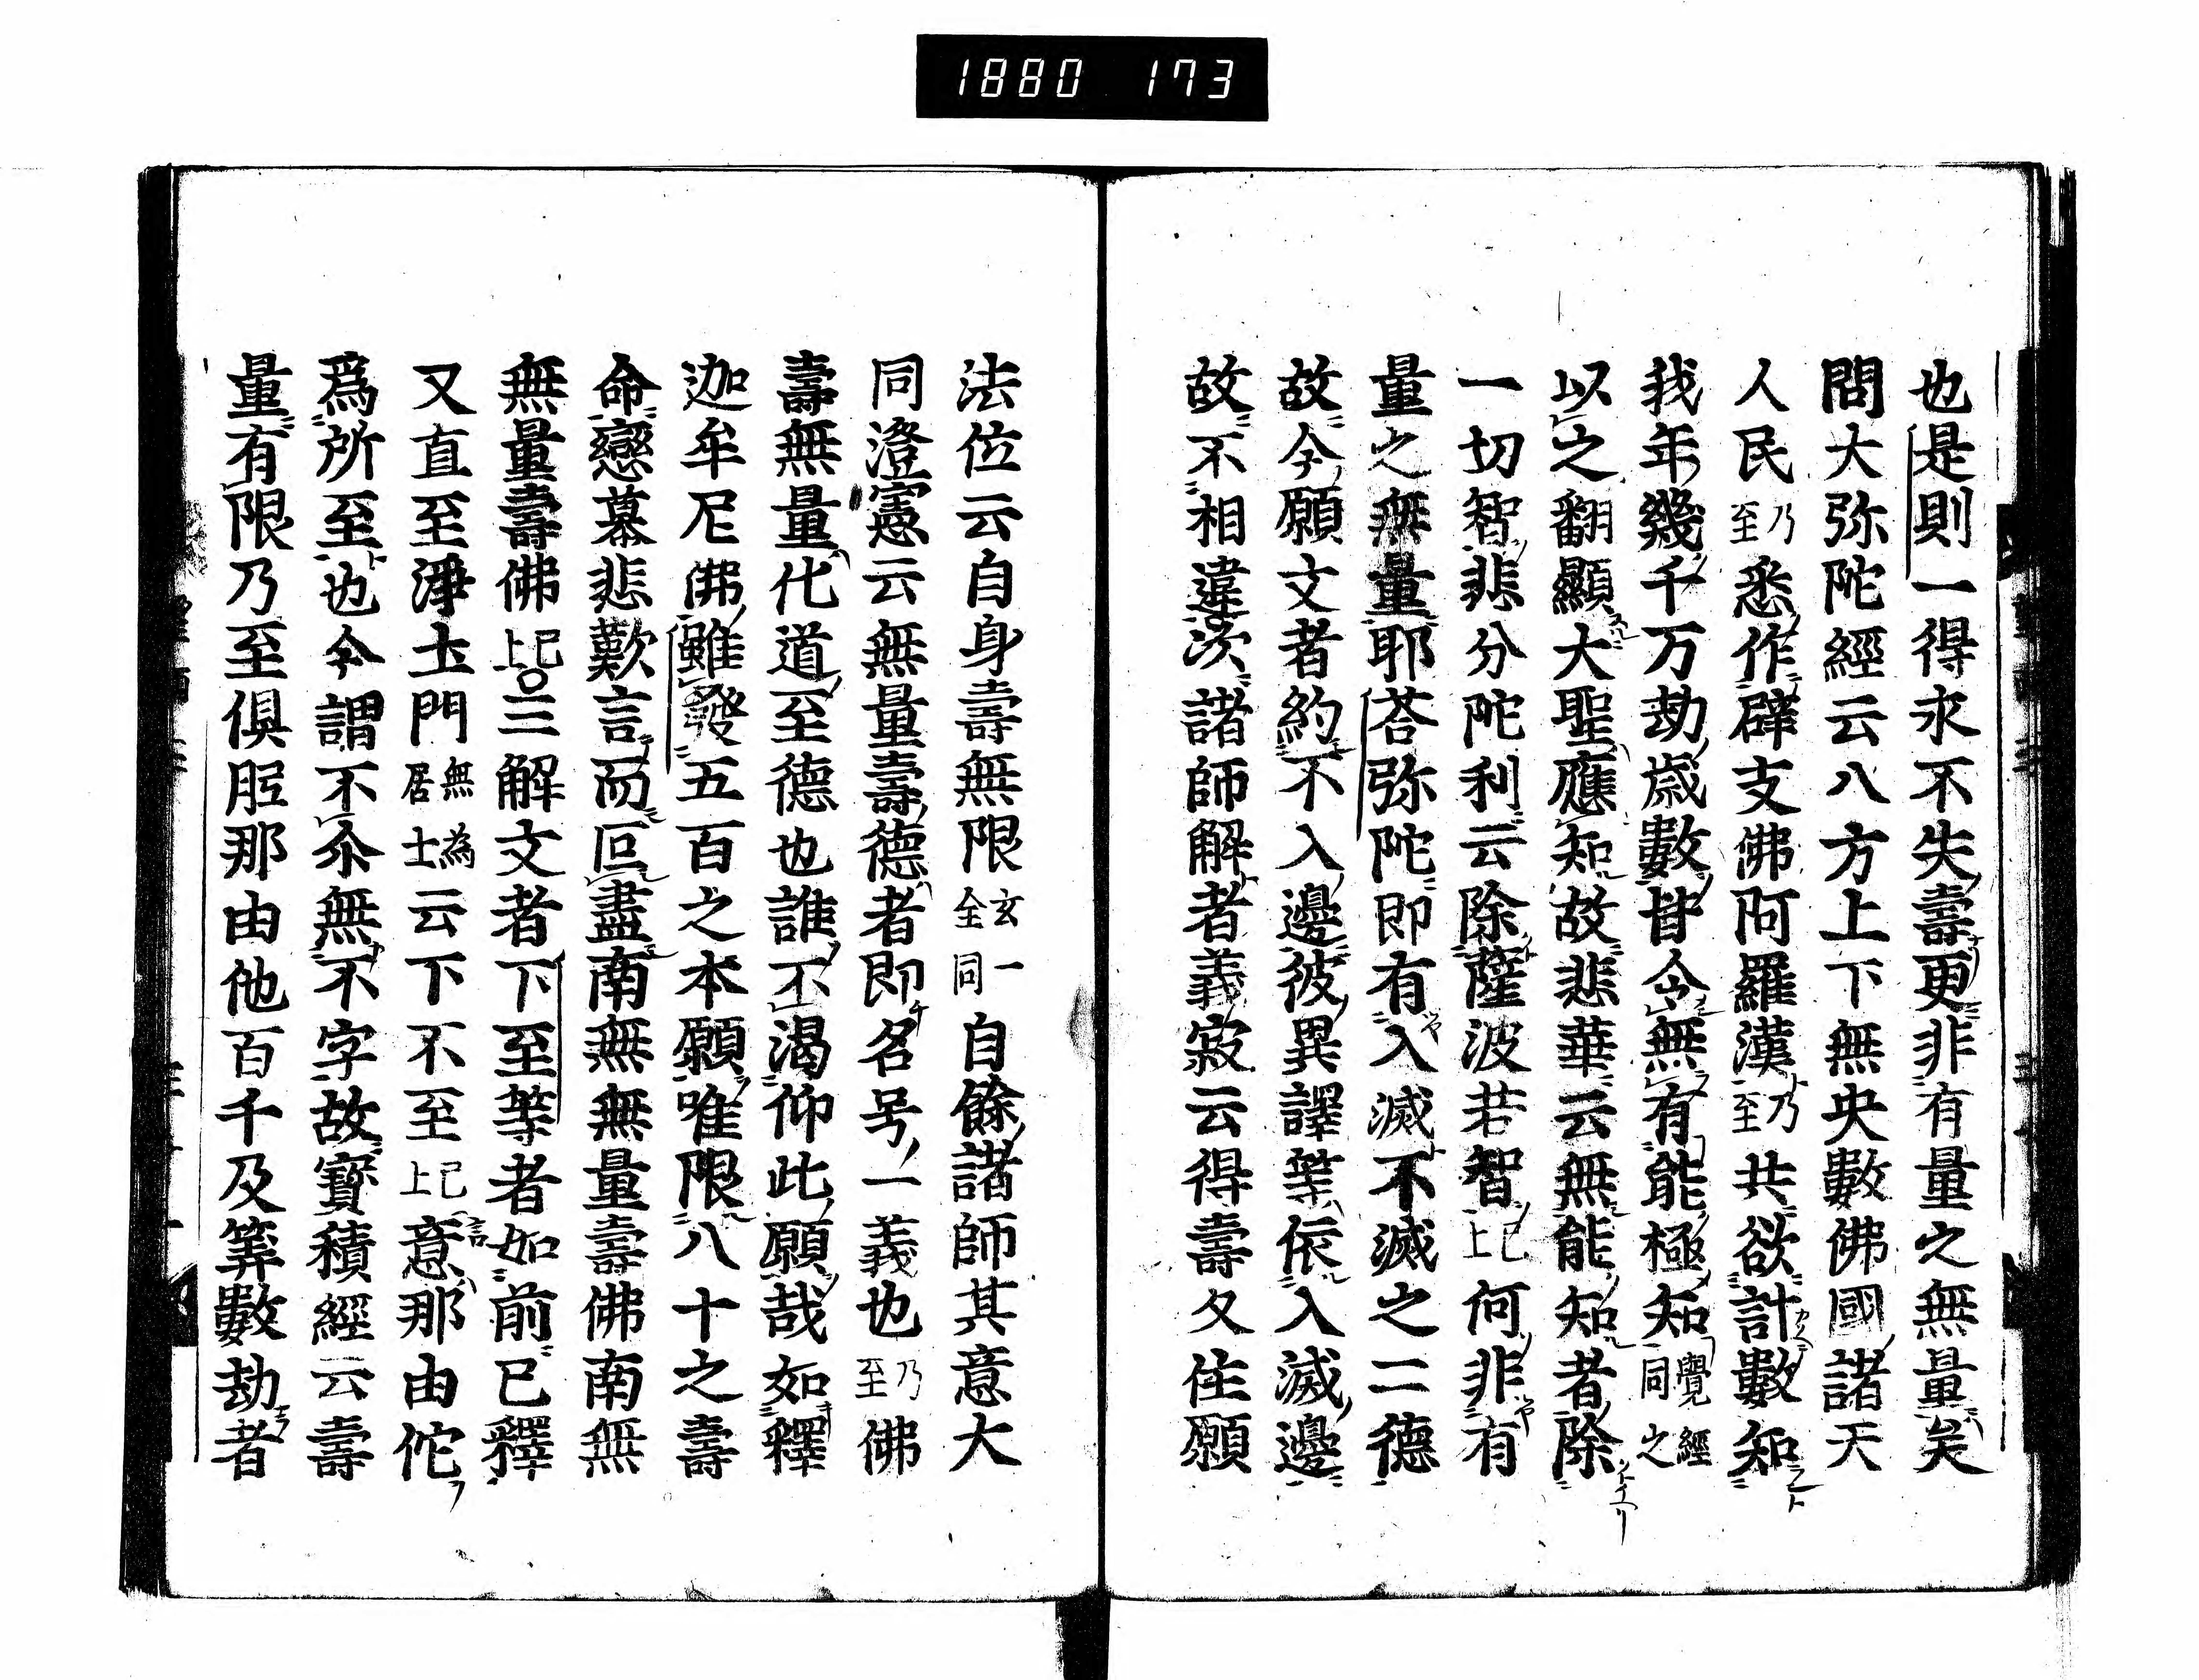 1880 173
也是則一得永不失壽更非有量之無量矣
問大弥陀經云八方上下無央數佛國諸天
人民乃至悉作辟支佛阿羅漢乃至共欲計數知
我年幾千万劫歳數皆令無有能極知覺經同之
以之翻顯大聖應知故悲華云無能知者除
一切智悲分陀利云除薩波若智已上何非有
量之無量耶荅弥陀即有入滅不滅之二德
故今願文者約不入邊彼異譯等依入滅邊
故不相違次諸師解者義寂云得壽久住願
法位云自身壽無限玄一全同自餘諸師其意大
同澄憲云無量壽德者即名号一義也乃至佛
壽無量化道至德也誰不渇仰此願哉如釋
迦牟尼佛雖發五百之本願唯限八十之壽
命戀慕悲歎言而叵盡南無無量壽佛南無
無量壽佛已上〇三解文者下至等者如前已釋
又直至淨土門無為居士云下不至已上意言那由佗
爲所至也今謂不尒無不字故寶積經云壽
量有限乃至俱胝那由他百千及筭數劫者